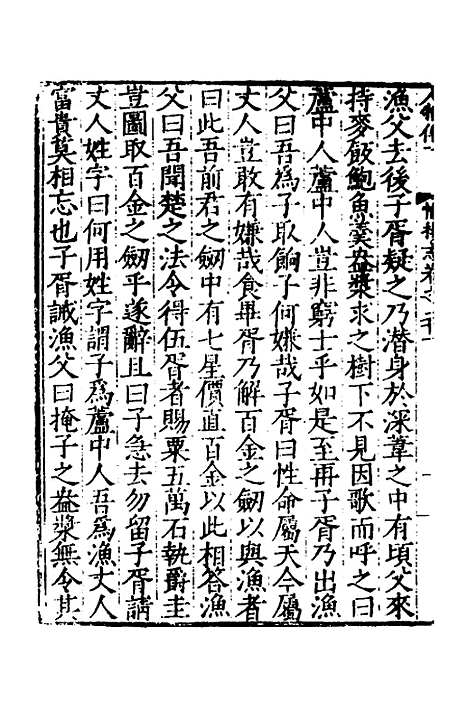 漁父去後子胥疑之乃潛身於深葦之中有頃父來
持麥飯鮑魚羹盎漿求之樹下不見因歌而呼之曰
蘆中人蘆中人豈非窮士乎如是至再子胥乃出漁
父曰吾爲子取餉子何嫌哉子胥曰性命屬天今屬
丈人豈敢有嫌哉食畢胥乃解百金之劒以與漁者
曰此吾前君之劒中有七星價直百金以此相答漁
父曰吾聞楚之法令得伍胥者賜粟五萬石執爵圭
豈圖取百金之劒乎遂辭且曰子急去勿留子胥請
丈人姓字曰何用姓字謂子爲蘆中人吾爲漁丈人
富貴莫相忘也子胥誡漁父曰掩子之盎漿無令其